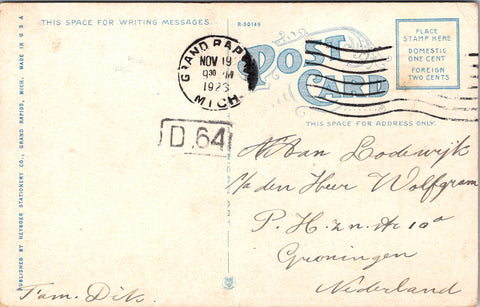 THIS SPACE FOR WRITING MESSAGES.
R-30149
POST CARD
THIS SPACE FOR ADDRESS ONLY.
PLACE
STAMP HERE
DOMESTIC
ONE CENT
FOREIGN
TWO CENTS
GRAND RAPIDS
NOV 19
930 PM
1923
MICH.
D.64
PUBLISHED BY HEYBOER STATIONERY CO., GRAND RAPIDS, MICH. MADE IN U S A
Lodewijk
den Heer Wolfgram
P. H. z. n. A 10a
Groningen
Nederland
Fam. Dik.